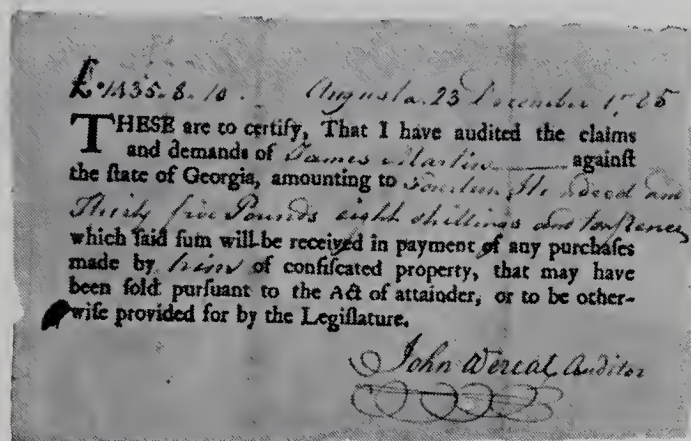 £1435.8.10. Augusta 23 December 1785
THESE are to certify, That I have audited the claims
and demands of James Martin againſt
the ſtate of Georgia, amounting to Fourteen Hundred and
Thirty five Pounds eight shillings and tenpence
which ſaid ſum will be received in payment of any purchaſes
made by him of confiſcated property, that may have
been ſold purſuant to the Act of attainder, or to be other-
wiſe provided for by the Legiſlature.
John Wereat, Auditor